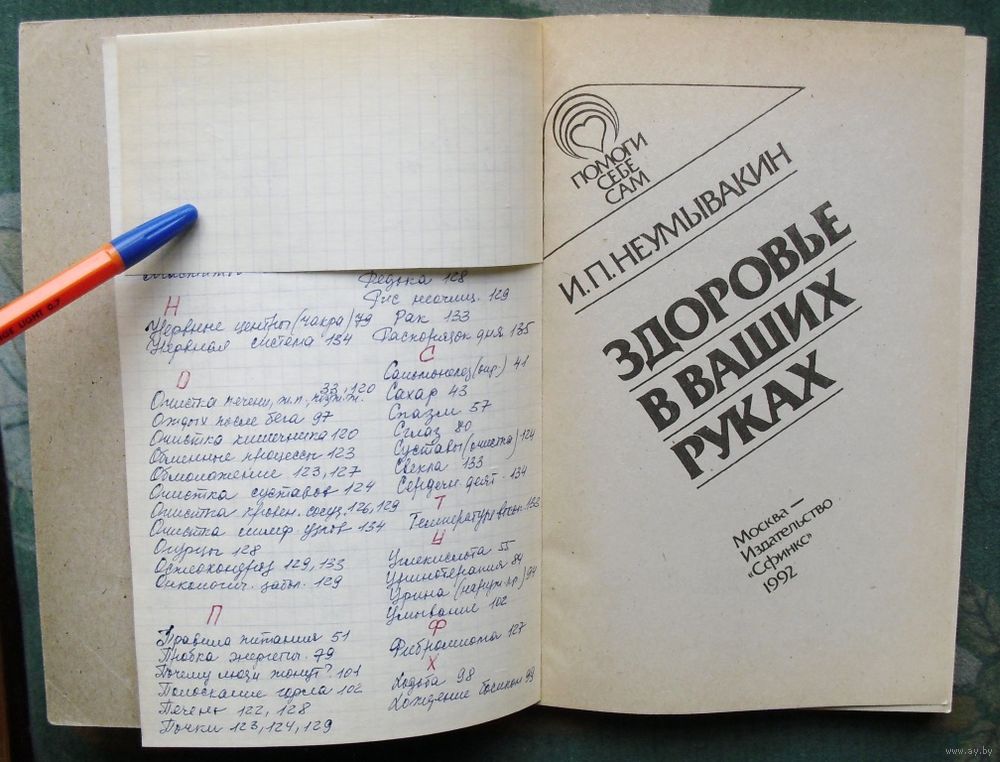 Редька 128
Рис неочищ. 129
Рак 133
Распорядок дня 135
Н
Нервные центры (чакра) 79
Нервная система 134
О
33, 120
Очистка печени, ж.п.,
Отдых после бега 97
Очистка кишечника 120
Обменные процессы 123
Обмоложение 123, 127
Очистка суставов 124
Очистка кровен. сосуд. 126, 129
Очистка лимф узлов 134
Огурцы 128
Остеохондроз 129, 133
Онкологич. забол. 129
П
Правила питания 51
Пробка энергетич. 79
Почему люди жонут? 101
Полоскание горла 102
Печень 122, 128
Почки 123, 124, 129
С
41
Сахар 43
Спазм 57
Сглаз 80
Суставы (очистка) 124
Свекла 133
Сердечн. деят. 134
Т
Температура
У
Углекислота 55
Уринотерапия 84
Урина (наружн. пр.) 94
Умывание 102
Ф
Фибромиома 127
Х
Ходьба 98
Хождение босиком 99
ПОМОГИ
СЕБЕ
САМ
И.П. НЕУМЫВАКИН
ЗДОРОВЬЕ
В ВАШИХ
РУКАХ
Москва —
Издательство
"Сфинкс"
1992
LIGHT 0.7
www.ay.by